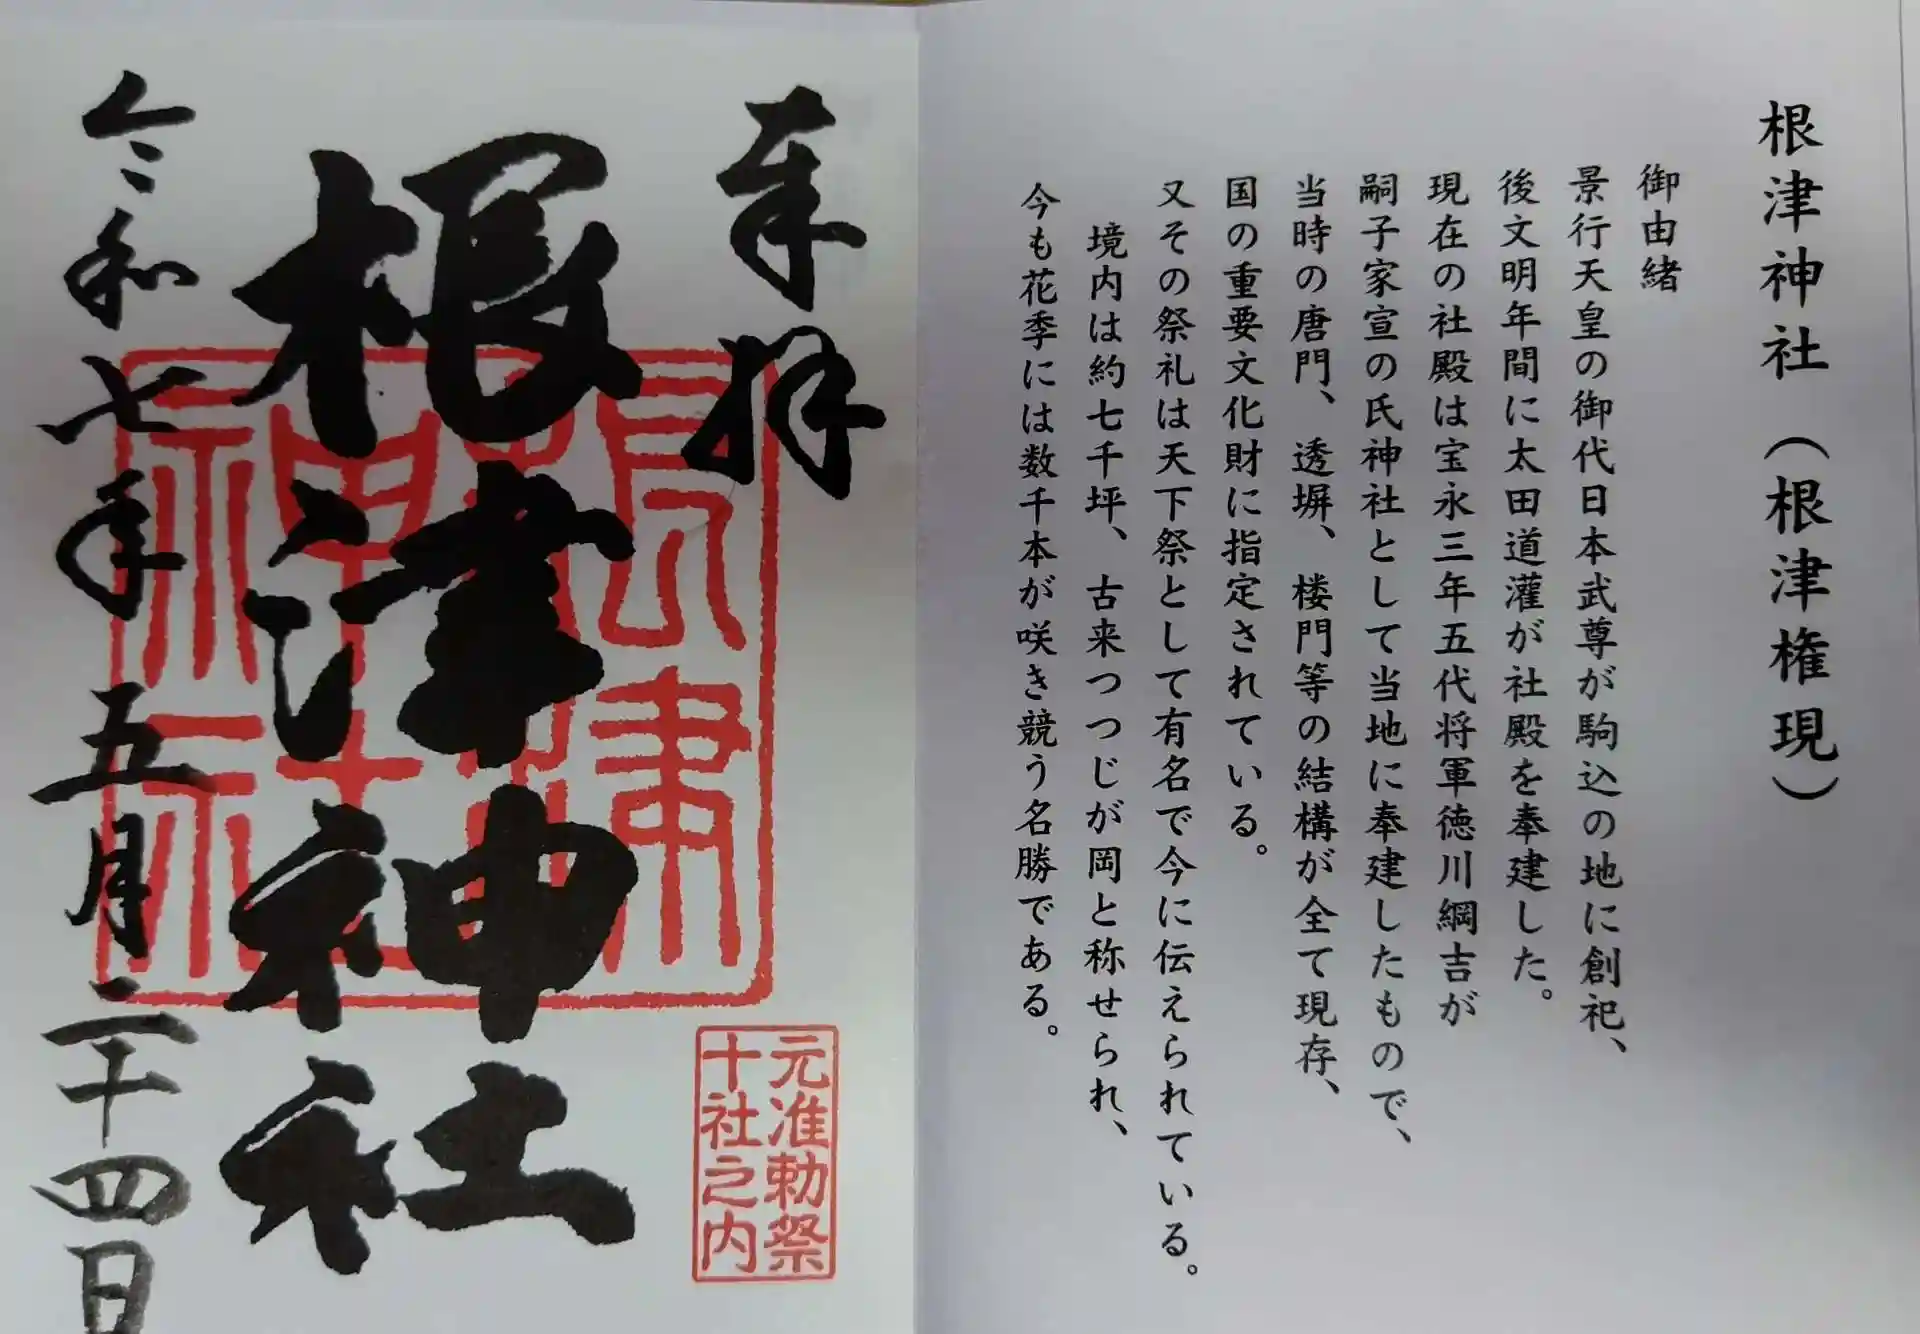 根津神社（根津権現）
御由緒
景行天皇の御代日本武尊が駒込の地に創祀、
後文明年間に太田道灌が社殿を奉建した。
現在の社殿は宝永三年五代将軍徳川綱吉が
嗣子家宣の氏神社として当地に奉建したもので、
当時の唐門、透塀、楼門等の結構が全て現存、
国の重要文化財に指定されている。
又その祭礼は天下祭として有名で今に伝えられている。
境内は約七千坪、古来つつじが岡と称せられ、
今も花季には数千本が咲き競う名勝である。
奉拝
根津神社
令和七年五月二十四日
根津
神社
元准勅祭
十社之内